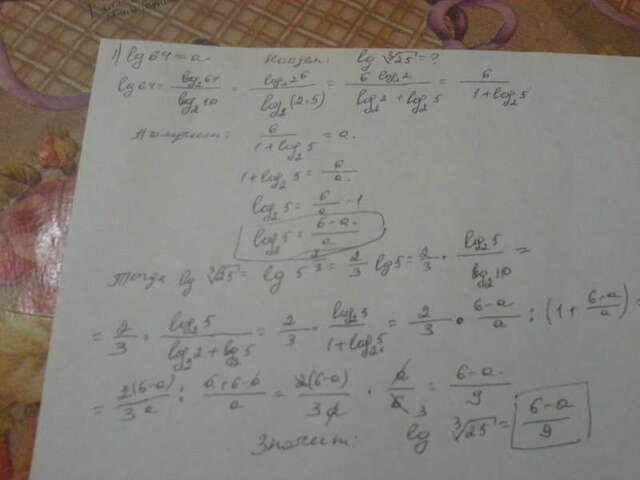 1) lg 64 = a найдем: lg ∛25 = ?
lg 64 = log₂64 / log₂10 = log₂2⁶ / log₂(2·5) = 6 log₂2 / (log₂2 + log₂5) = 6 / (1 + log₂5)
Получили: 6 / (1 + log₂5) = a.
1 + log₂5 = 6/a.
log₂5 = 6/a - 1
log₂5 = (6 - a)/a
Тогда lg ∛25 = lg 5^(2/3) = 2/3 lg 5 = 2/3 · log₂5 / log₂10 =
= 2/3 · log₂5 / (log₂2 + log₂5) = 2/3 · log₂5 / (1 + log₂5) = 2/3 · (6-a)/a : (1 + (6-a)/a) =
= 2(6-a) / 3a : (a + 6 - a)/a = 2(6-a) / 3a · a / 6 3 = (6-a) / 9
Значит: lg ∛25 = (6-a) / 9